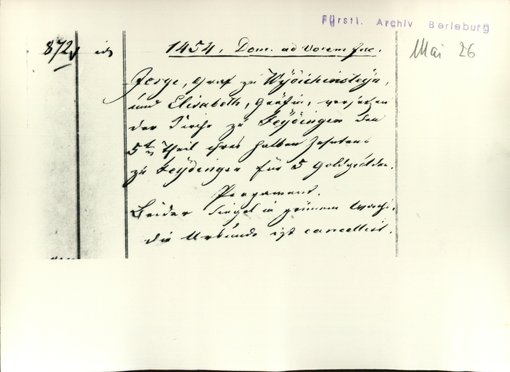 Fürstl. Archiv Berleburg
Mai 26
872 1454, Dom. ad vocem
Jorge, Graf zu
und Elisabeth, Gräfin, versetzen
der Kirche zu Feydingen den
5ten Theil ihres halben Zehnten
zu Feydingen für 5 Goldgulden.
Pergament.
Beider Siegel in grünem Wachs,
die Urkunde ist cancellirt.